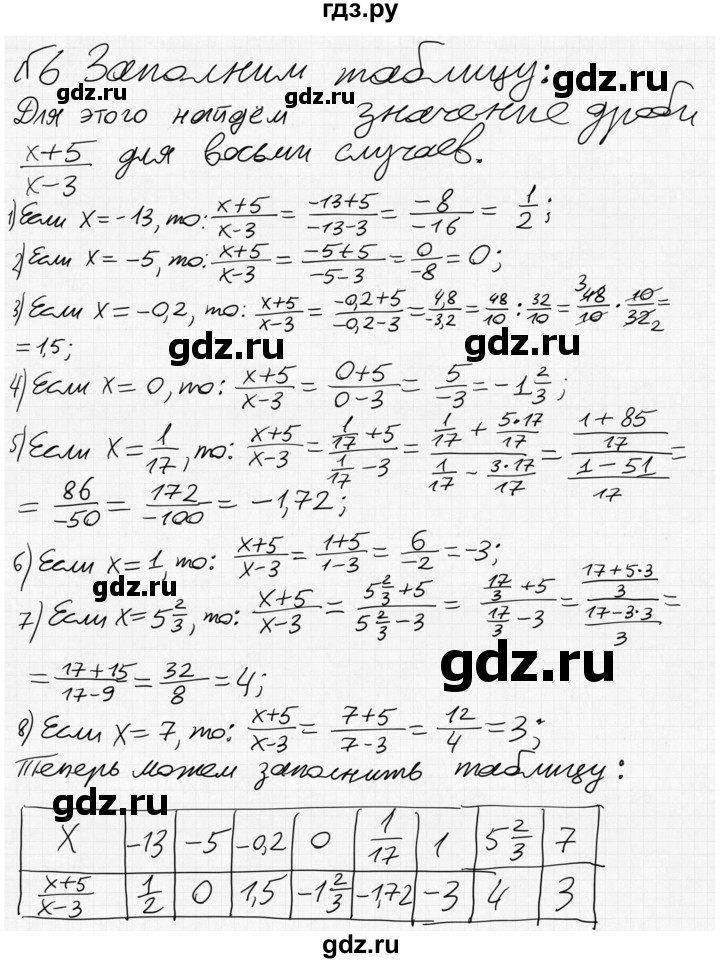 гдз.ру
№6 Заполним таблицу:
Для этого найдём значение дроби
(x+5)/(x-3) для восьми случаев.
1) Если x=-13, то: (x+5)/(x-3) = (-13+5)/(-13-3) = (-8)/(-16) = 1/2;
2) Если x=-5, то: (x+5)/(x-3) = (-5+5)/(-5-3) = 0/(-8) = 0;
3) Если x=-0,2, то: (x+5)/(x-3) = (-0,2+5)/(-0,2-3) = 4,8/(-3,2) = 48/10 : 32/10 = 3 48/10 · 10/32 2 =
= 1,5;
4) Если x=0, то: (x+5)/(x-3) = (0+5)/(0-3) = 5/(-3) = -1 2/3;
5) Если x=1/17, то: (x+5)/(x-3) = (1/17+5)/(1/17-3) = (1/17 + 5·17/17)/(1/17 - 3·17/17) = ((1+85)/17)/((1-51)/17) =
= 86/(-50) = 172/(-100) = -1,72;
6) Если x=1, то: (x+5)/(x-3) = (1+5)/(1-3) = 6/(-2) = -3;
7) Если x=5 2/3, то: (x+5)/(x-3) = (5 2/3+5)/(5 2/3-3) = (17/3+5)/(17/3-3) = ((17+5·3)/3)/((17-3·3)/3) =
= (17+15)/(17-9) = 32/8 = 4;
8) Если x=7, то: (x+5)/(x-3) = (7+5)/(7-3) = 12/4 = 3;
Теперь можем заполнить таблицу:
x -13 -5 -0,2 0 1/17 1 5 2/3 7
(x+5)/(x-3) 1/2 0 1,5 -1 2/3 -1,72 -3 4 3
gdz.ru
gdz.ru
gdz.ru
gdz.ru
gdz.ru
gdz.ru
gdz.ru
gdz.ru